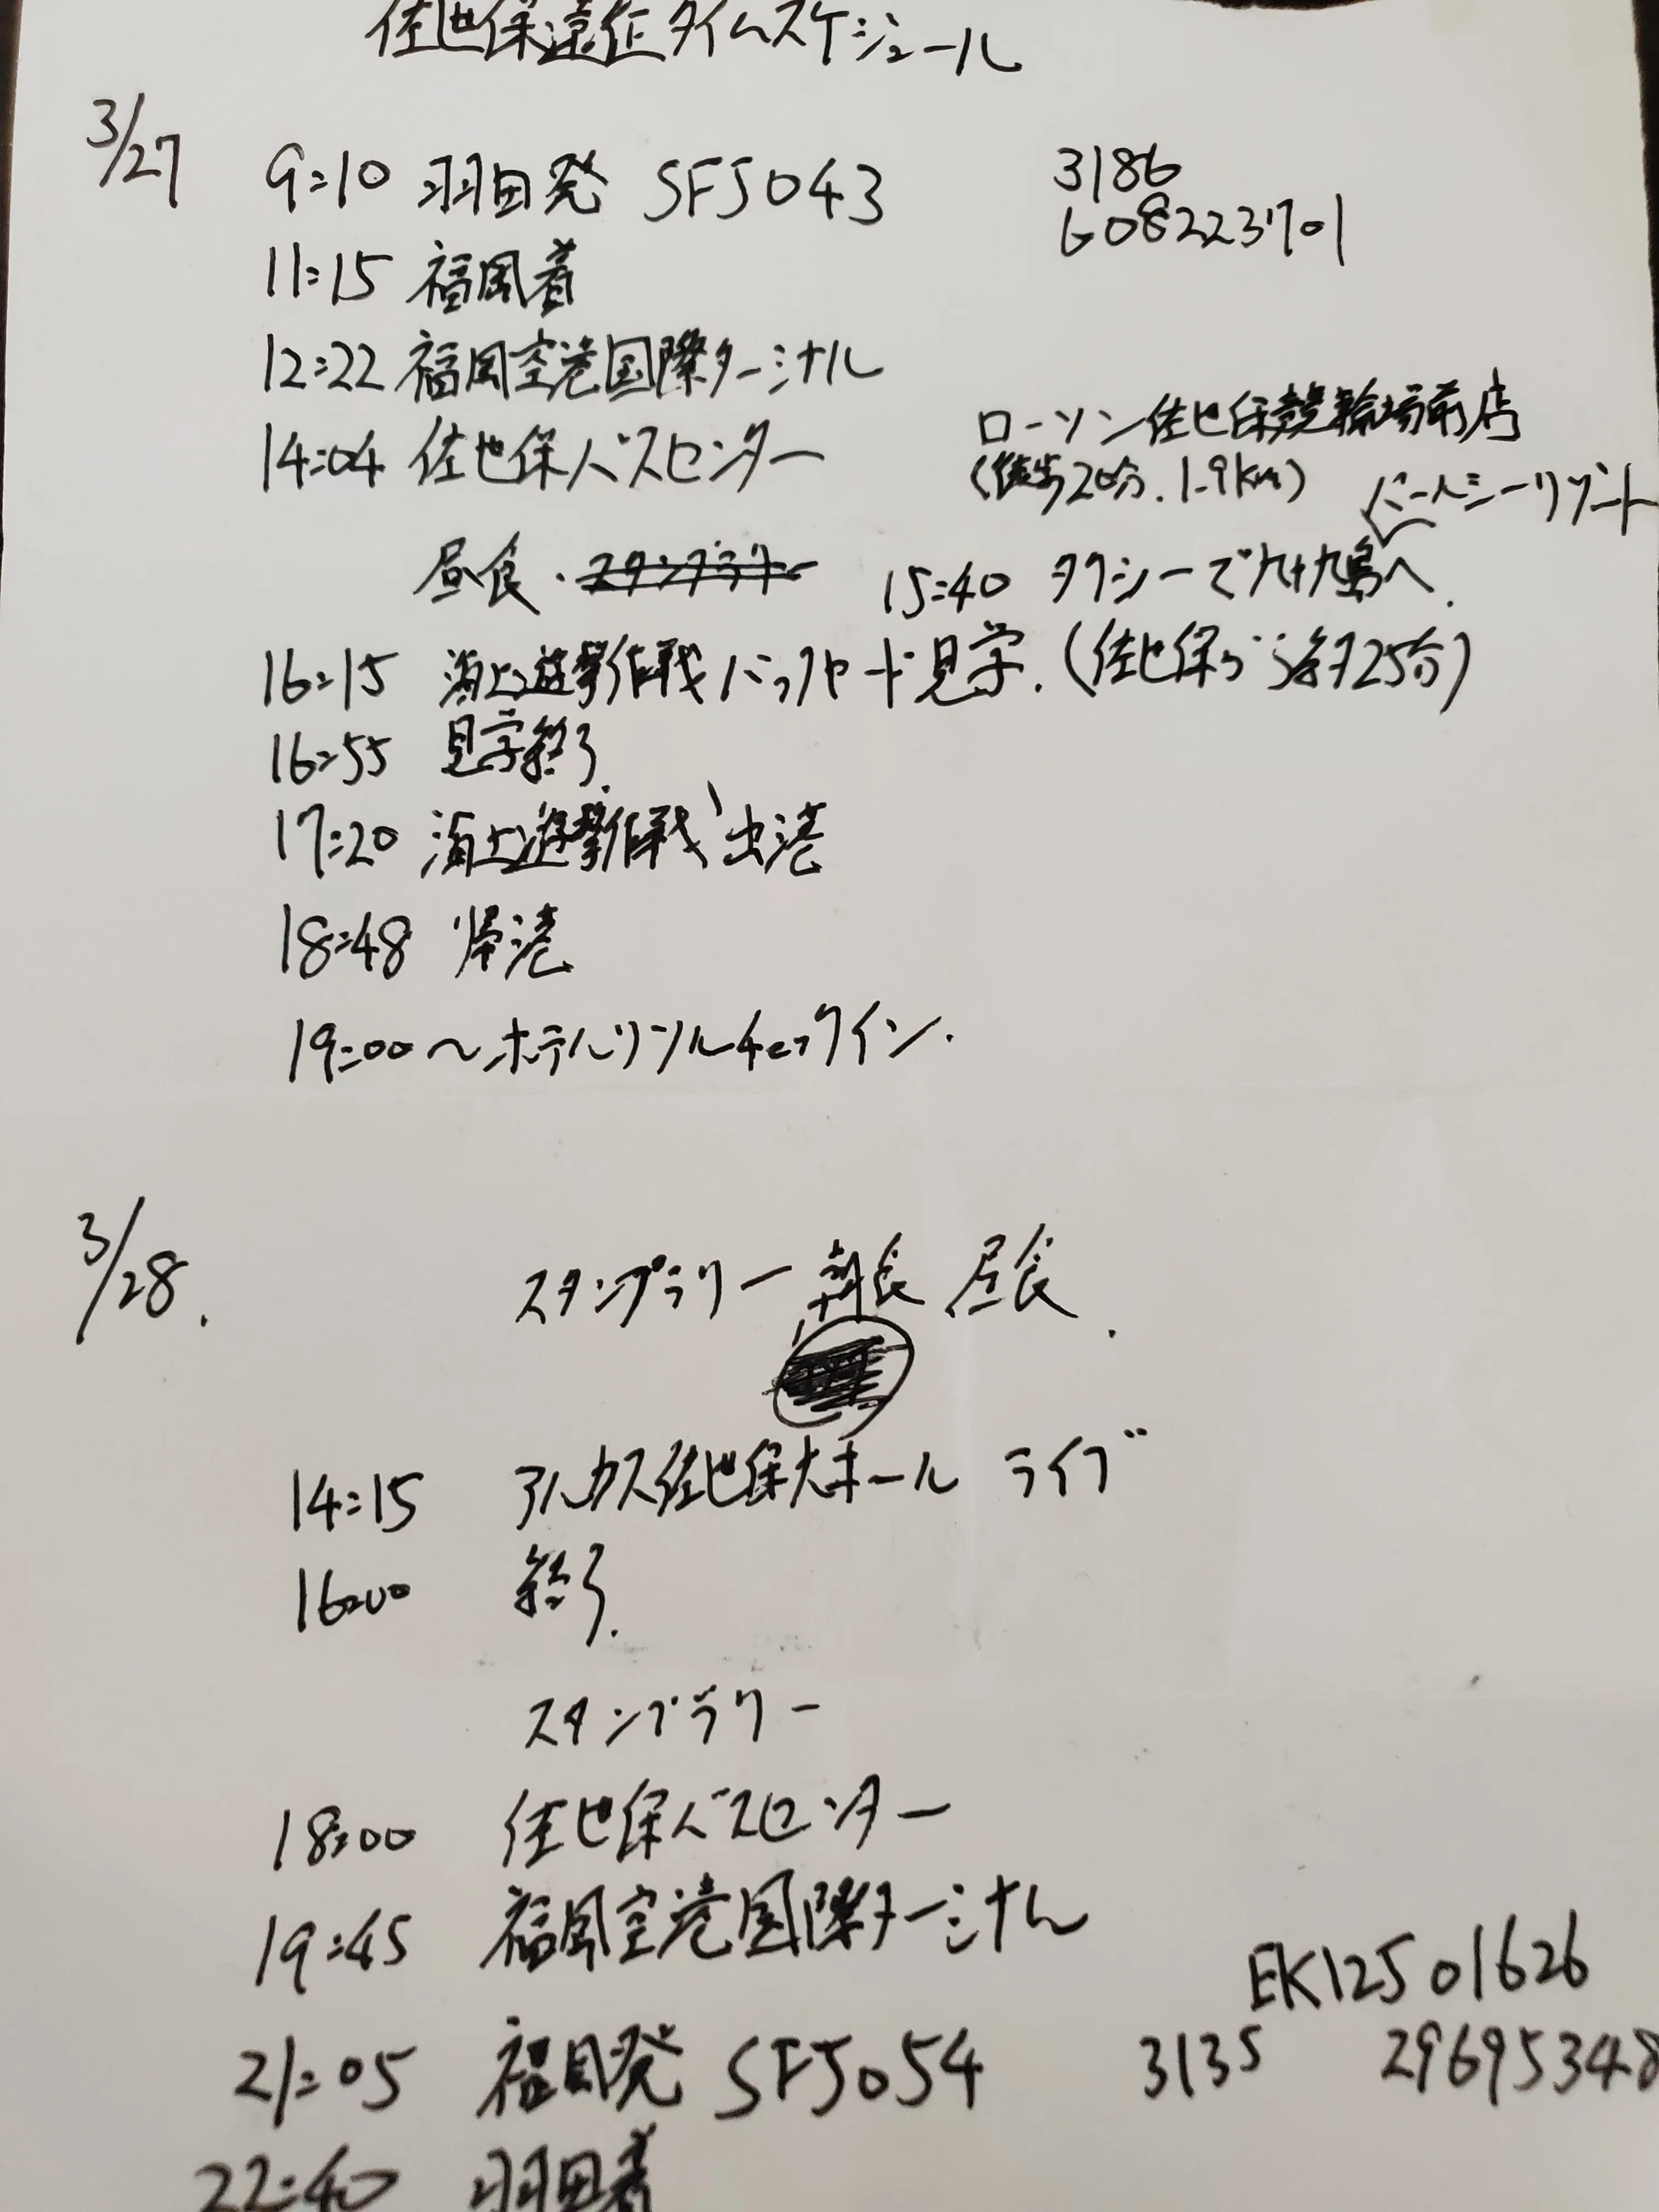 佐世保遠征タイムスケジュール
3/27
9:10 羽田発 SFJ043
3186
6082223701
11:15 福岡着
12:22 福岡空港国際ターミナル
14:04 佐世保バスセンター
ローソン佐世保競輪場前店
(徒歩20分.1.9km)
パールシーリゾート
昼食・スタンプラリー
15:40 タクシーで九十九島へ.
16:15 海上遊撃作戦バックヤード見学.(佐世保から約25分)
16:55 見学終了
17:20 海上遊撃作戦出港
18:48 帰港
19:00〜ホテルリソルチェックイン.
3/28.
スタンプラリー 朝食 昼食.
14:15 アルカス佐世保大ホール ライブ
16:00 終了.
スタンプラリー
18:00 佐世保バスセンター
19:45 福岡空港国際ターミナル
EK12501626
21:05 福岡発 SFJ054 3135 29695348
22:40 羽田着